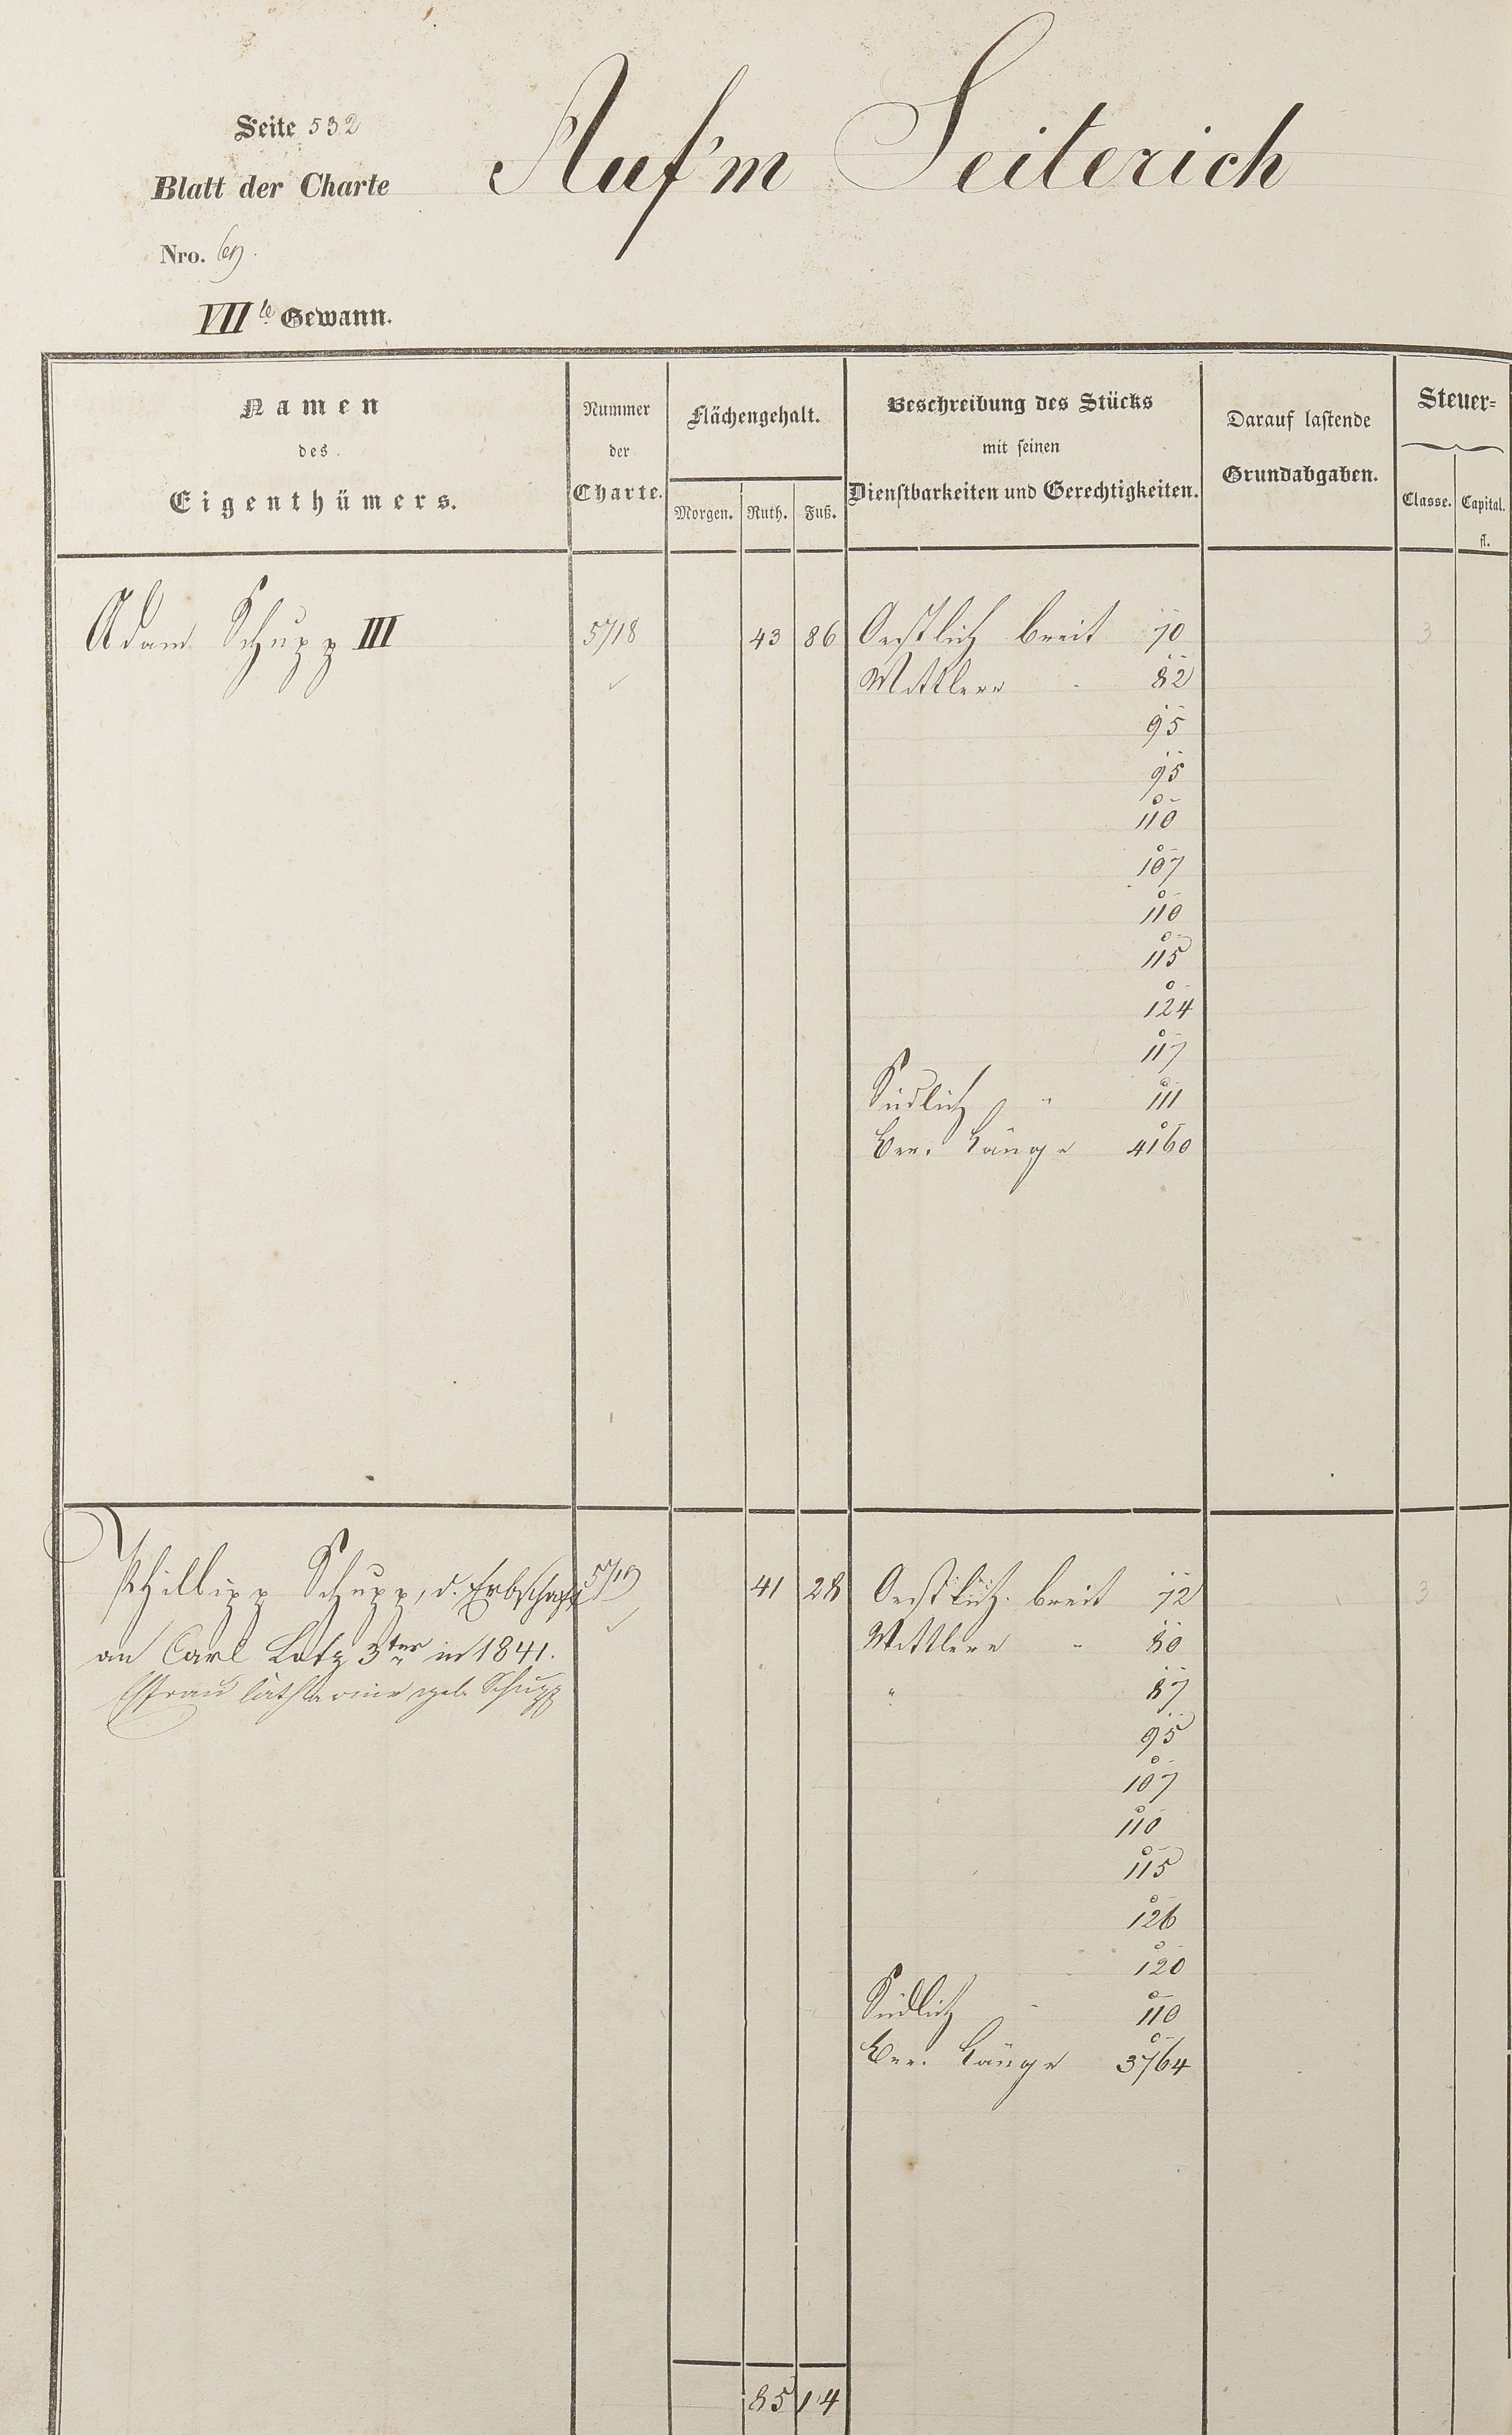 Seite 532
Blatt der Charte
Auf'm Seiterich
Nro.
VII te Gewann.
Namen
des
Eigenthümers.
Nummer
der
Charte.
Flächengehalt.
Morgen. Ruth. Fuß.
Beschreibung des Stücks
mit seinen
Dienstbarkeiten und Gerechtigkeiten.
Darauf lastende
Grundabgaben.
Steuer-
Classe. Capital.
fl.
Adam Schupp III 5718 43 86 Oestlich breit 70 3
Mittlere - 82
95
95
110
107
110
115
124
117
Südlich " 111
Ber. Länge 4160
Phillipp Schupp, d. Erbschaft 5719 41 28 Oestlich breit 72 3
an Carl Lotz 3ter in 1841. Mittlere - 80
Ehfrau Catharine geb. Schupp " 87
95
107
110
115
126
120
Südlich - 110
Ber. Länge 3764
85 14